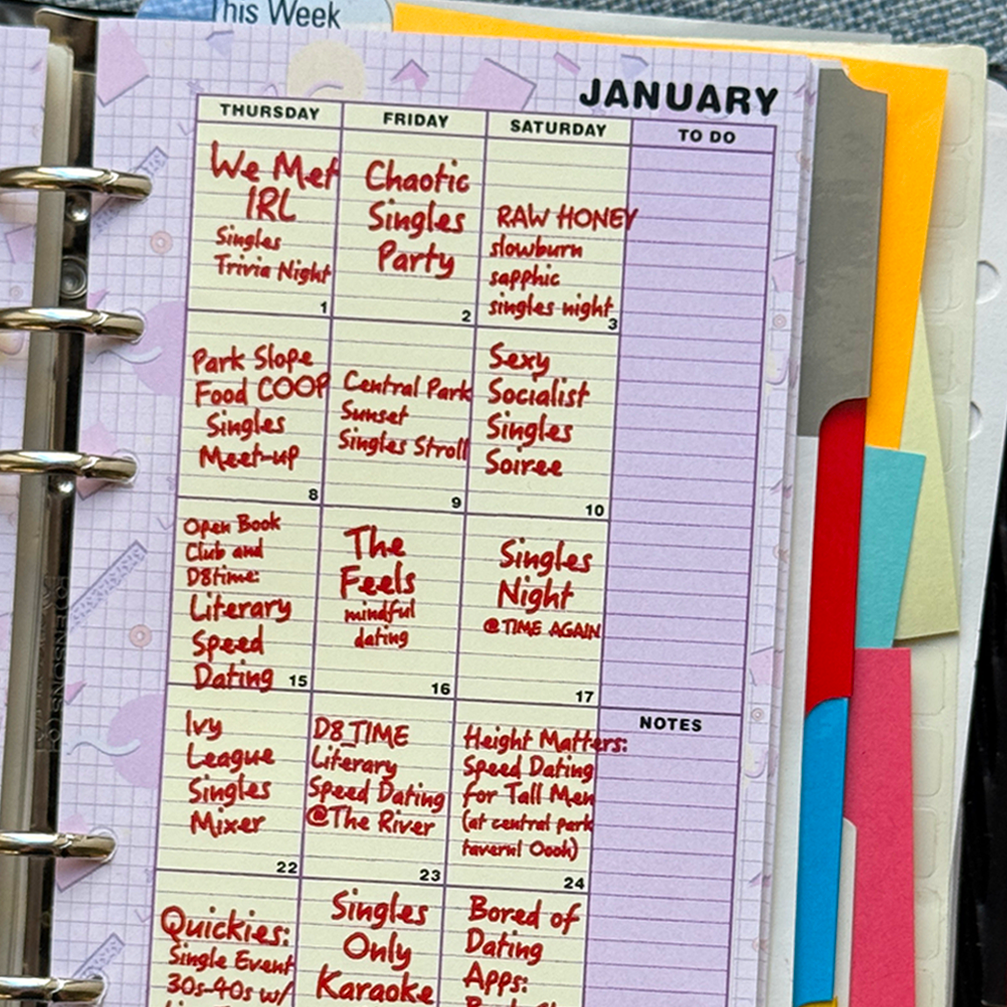 This Week
JANUARY
THURSDAY
FRIDAY
SATURDAY
TO DO
We Met
IRL
Singles
Trivia Night
1
Chaotic
Singles
Party
2
RAW HONEY
slowburn
sapphic
singles night
3
Park Slope
Food COOP
Singles
Meet-up
8
Central Park
Sunset
Singles Stroll
9
Sexy
Socialist
Singles
Soiree
10
Open Book
Club and
D8time:
Literary
Speed
Dating
15
The
Feels
mindful
dating
16
Singles
Night
@TIME AGAIN
17
NOTES
Ivy
League
Singles
Mixer
22
D8_TIME
Literary
Speed Dating
@The River
23
Height Matters:
Speed Dating
for Tall Men
(at central park
tavern! Oooh)
24
Quickies:
Single Event
30s-40s w/
Singles
Only
Karaoke
Bored of
Dating
Apps: